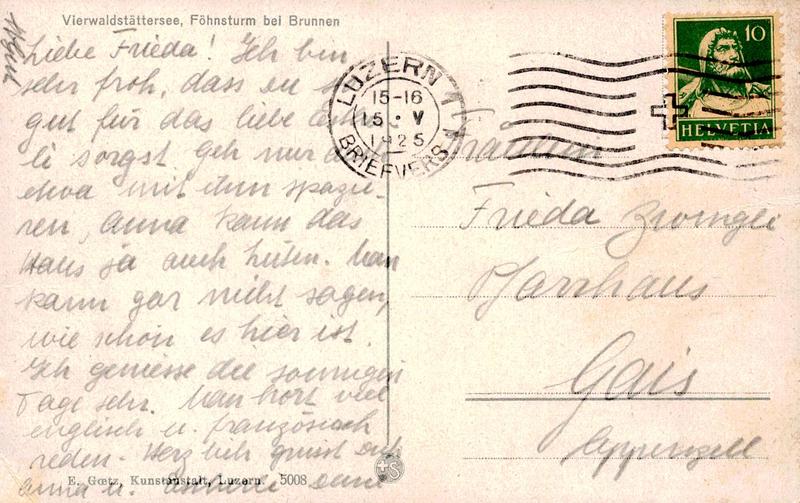 Vierwaldstättersee, Föhnsturm bei Brunnen
Liebe Frieda! Ich bin
sehr froh, dass du so
gut für das liebe
li sorgst. Geh nur
etwa mit ihm spazie-
ren, Anna kann das
Haus ja auch hüten. Man
kann gar nicht sagen,
wie schön es hier ist.
Ich geniesse die sonnigen
Tage sehr. Man hört viel
englisch u. französisch
reden. Herzlich grüsst dich
Anna u.
E. Gœtz, Kunstanstalt, Luzern. 5008
LUZERN 1
15-16
15. V
1925
BRIEFVERS.
10
HELVETIA
Fräulein
Frieda Zwingli
Pfarrhaus
Gais
Appenzell